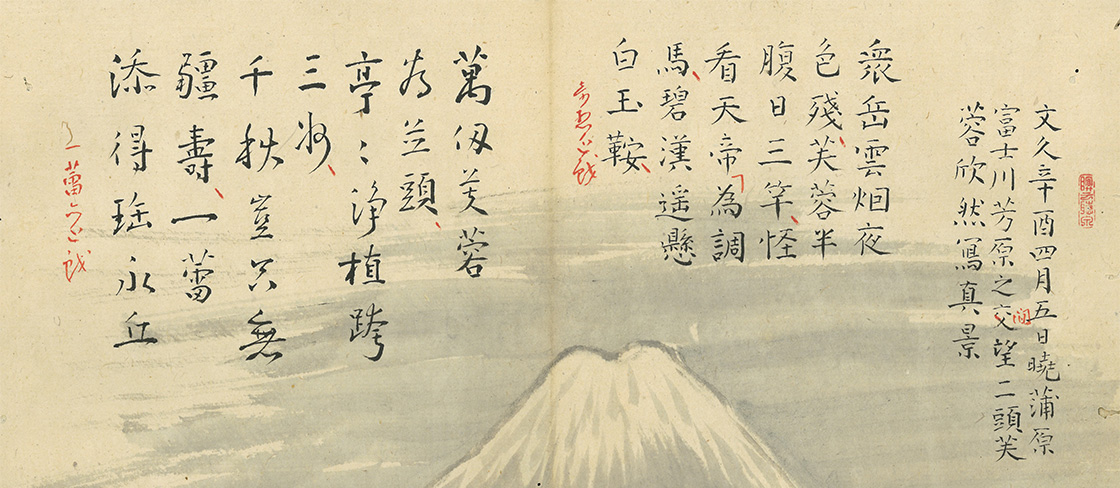 文久辛酉四月五日曉蒲原
富士川芳原之交望二頭芙
間
蓉欣然寫真景
衆岳雲烟夜
色殘芙蓉半
腹日三竿怪
看天帝為調
馬碧漢遥懸
白玉鞍
萬仭芙蓉
為並頭
亭〻淨植跨
三州
千秋豈只無
疆壽一蕾
添得瑶永丘